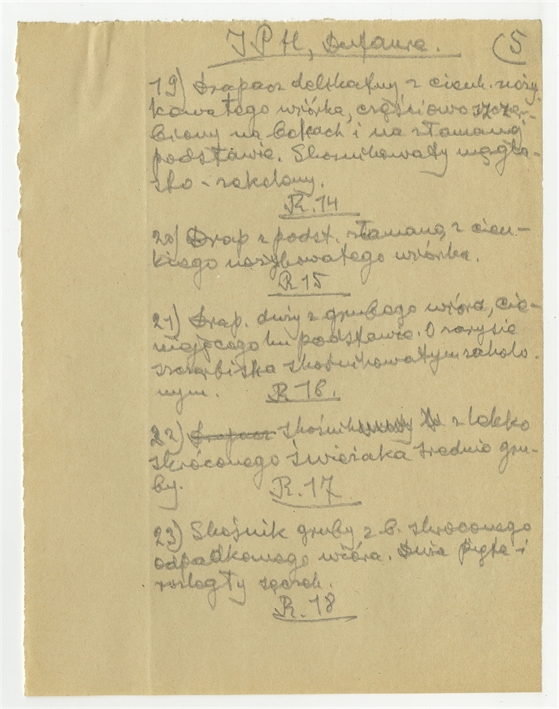 (5
19) Drapacz delikatny z cienk. noży-
kowatego wiórka, częściowo szczer-
biony na bokach i na złamanej
podstawie. Skośnikowaty węgła-
sko - zakolany.
R. 14
20) Drap z podst. złamaną, z cien-
kiego nożykowatego wiórka.
R 15
21) Drap. duży z grubego wióra, cie-
niejącego ku podstawie. O zarysie
skośnikowatym zakolo
nym. R. 16.
22) Drapacz skośnik z lekko
skróconego świeżaka średnio gru-
by. R. 17
23) Skośnik gruby z b. skróconego
odpadkowego wióra. Duża piętka i
rozległy sęczek.
R. 18